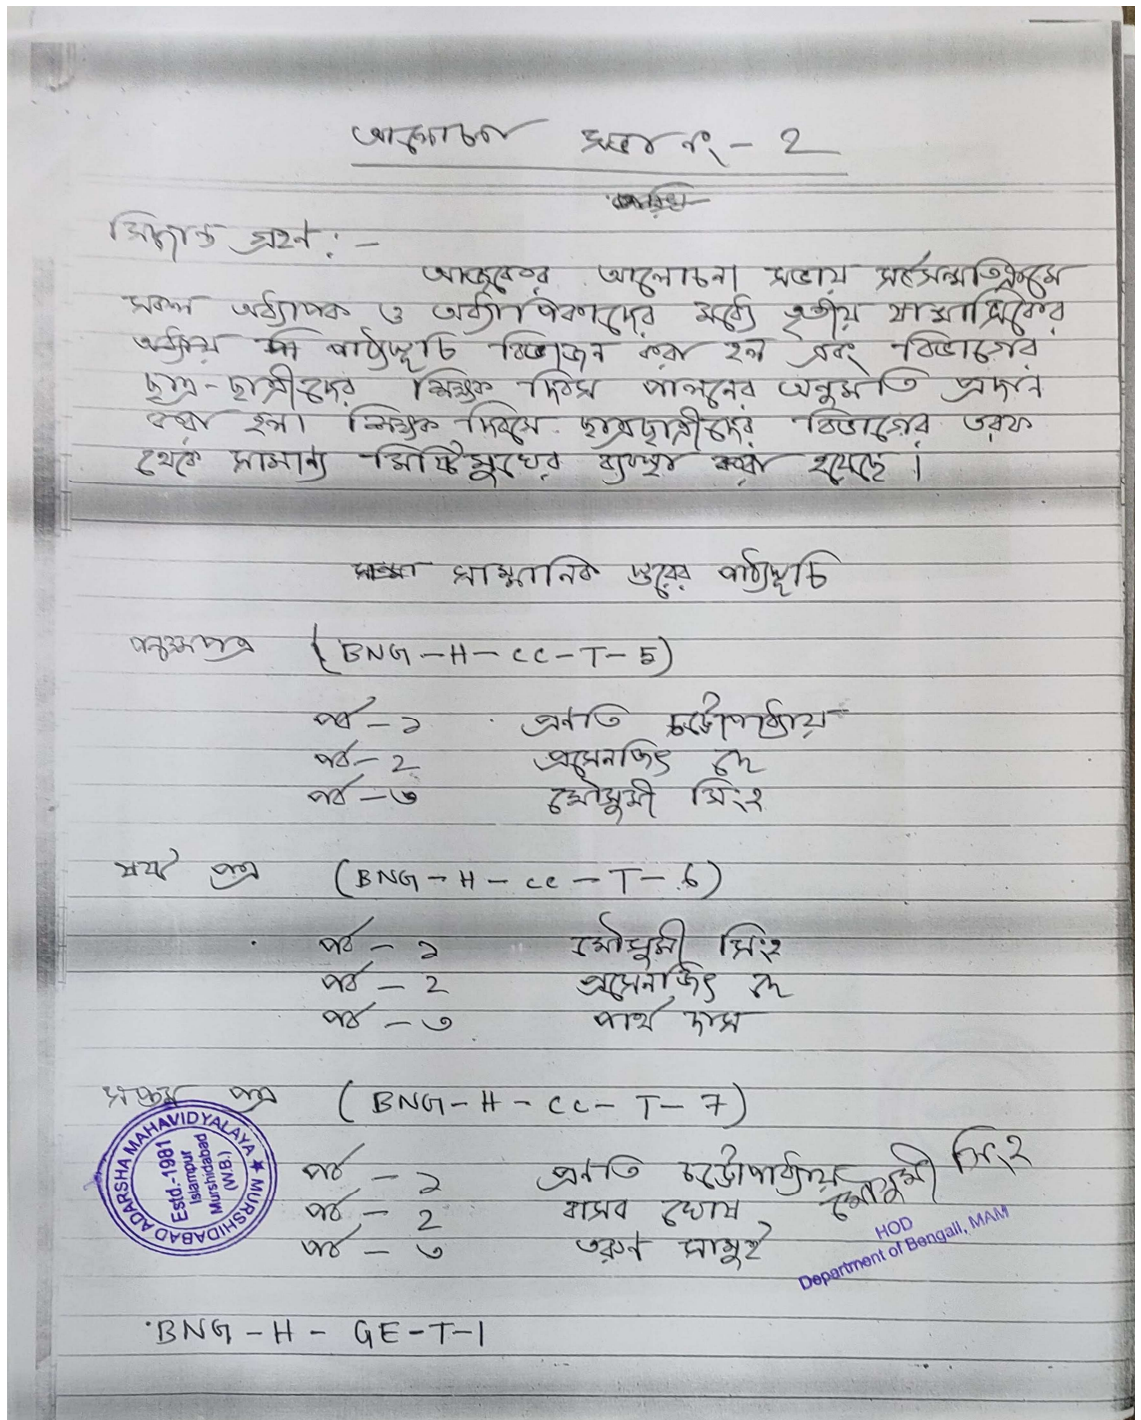 আলোচনা সভা নং - 2
সিদ্ধান্ত গ্রহণ : -
আজকের আলোচনা সভায় সর্বসম্মতিক্রমে
সকল অধ্যাপক ও অধ্যাপিকাদের মধ্যে তৃতীয় ষান্মাসিকের
পাঠ্যসূচি বিভাজন করা হল এবং বিভাগের
ছাত্র-ছাত্রীদের শিক্ষক দিবস পালনের অনুমতি প্রদান
করা হল। শিক্ষক দিবসে ছাত্রছাত্রীদের বিভাগের তরফ
থেকে সামান্য মিষ্টিমুখের ব্যবস্থা করা হয়েছে।
সাম্মানিক স্তরের পাঠ্যসূচি
পঞ্চমপত্র (BNG-H-CC-T-5)
পর্ব - ১ প্রণতি চট্টোপাধ্যায়
পর্ব - 2 প্রসেনজিৎ দে
পর্ব - ৩ মৌসুমী সিংহ
ষষ্ঠ পত্র (BNG-H-CC-T-6)
পর্ব - ১ মৌসুমী সিংহ
পর্ব - 2 প্রসেনজিৎ দে
পর্ব - ৩ পার্থ দাস
সপ্তম পত্র (BNG-H-CC-T-7)
পর্ব - ১ প্রণতি চট্টোপাধ্যায়
পর্ব - 2 বাসব ঘোষ
পর্ব - ৩ তরুণ সামুই
মৌসুমী সিংহ
HOD
Department of Bengali, MAM
MURSHIDABAD ADARSHA MAHAVIDYALAYA
Estd.-1981
Islampur
Murshidabad
(W.B.)
BNG-H-GE-T-1